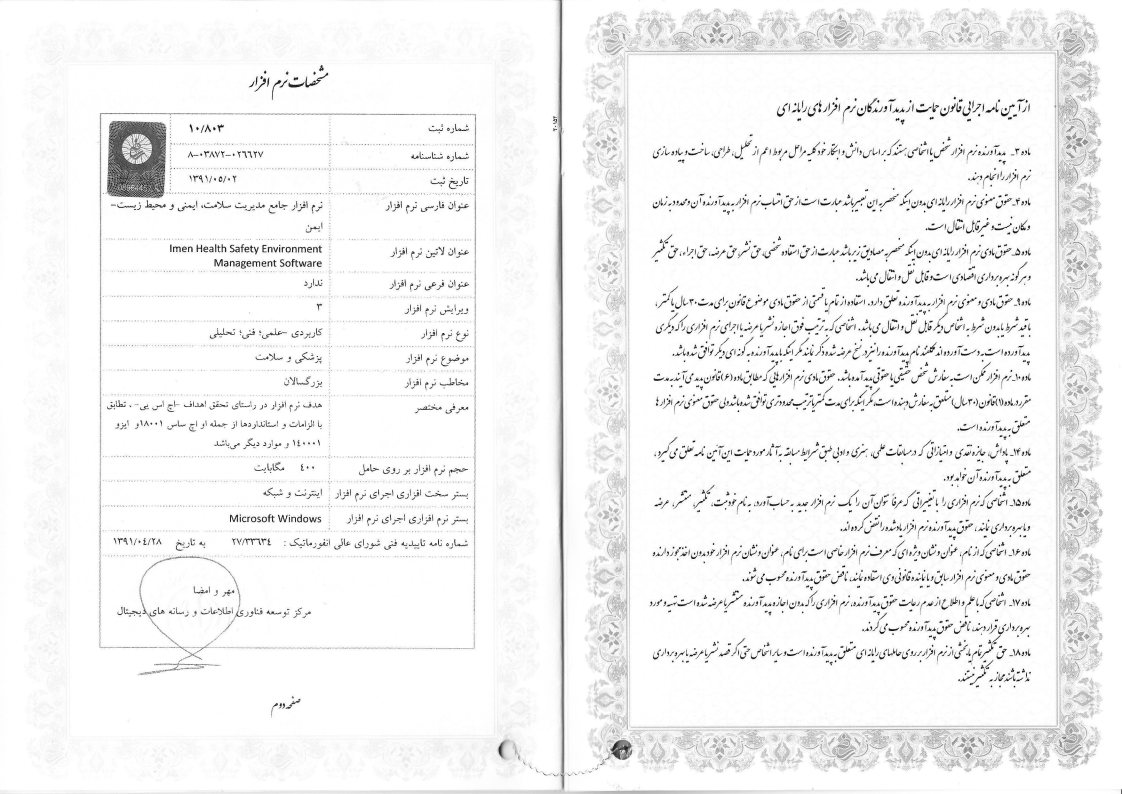 از آیین نامه اجرایی قانون حمایت از پدیدآورندگان نرم افزارهای رایانه ای
ماده ۲ـ پدیدآورنده نرم افزار شخص یا اشخاصی هستند که بر اساس دانش و ابتکار خود کلیه مراحل مربوط اعم از تحلیل، طراحی، ساخت و پیاده سازی
نرم افزار را انجام دهند.
ماده ۴ـ حقوق معنوی نرم افزار رایانه ای بدون اینکه منحصر به این تعبیر باشد عبارت است از حق انتساب نرم افزار به پدیدآورنده آن و محدود به زمان
و مکان نیست و غیر قابل انتقال است.
ماده ۵ـ حقوق مادی نرم افزار رایانه ای بدون اینکه منحصر به مصادیق زیر باشد عبارت از حق استفاده شخصی، حق نشر، حق عرضه، حق اجراء، حق تکثیر
و هرگونه بهره برداری اقتصادی است و قابل نقل و انتقال می باشد.
ماده ۹ـ حقوق مادی و معنوی نرم افزار به پدیدآورنده تعلق دارد. استفاده از تمام یا قسمتی از حقوق مادی موضوع قانون برای مدت ۳۰ سال یا کمتر،
با قید شرط یا بدون شرط به اشخاص دیگر قابل نقل و انتقال می باشد. اشخاصی که به ترتیب فوق اجازه نشر یا عرضه یا اجرای نرم افزاری را که دیگری
پدیدآورده است به دست آورده اند مکلفند نام پدیدآورنده را نیز در نسخ عرضه شده ذکر نمایند مگر اینکه با پدیدآورنده به گونه ای دیگر توافق شده باشد.
ماده ۱۰ـ نرم افزار ممکن است به سفارش شخص حقیقی یا حقوقی پدید آمده باشد. حقوق مادی نرم افزارهایی که مطابق ماده (۶) قانون پدید می آیند به مدت
مقرر در ماده (۱) قانون (۳۰ سال) متعلق به سفارش دهنده است، مگر اینکه برای مدت کمتر یا ترتیب محدودتری توافق شده باشد ولی حقوق معنوی نرم افزارها
متعلق به پدیدآورنده است.
ماده ۱۴ـ پاداش، جایزه نقدی و امتیازاتی که در مسابقات علمی، هنری و ادبی طبق شرایط مسابقه به آثار مورد حمایت این آئین نامه تعلق می گیرد،
متعلق به پدیدآورنده آن خواهد بود.
ماده ۱۵ـ اشخاصی که نرم افزاری را با تغییراتی که عرفاً نتوان آن را یک نرم افزار جدید به حساب آورد، به نام خود ثبت، تکثیر، منتشر، عرضه
و یا بهره برداری نمایند، حقوق پدیدآورنده نرم افزار یاد شده را نقض کرده اند.
ماده ۱۶ـ اشخاصی که از نام، عنوان و نشان ویژه ای که معرف نرم افزار خاصی است برای نام، عنوان و نشان نرم افزار خود بدون اخذ مجوز دارنده
حقوق مادی و معنوی نرم افزار سابق و یا نماینده قانونی وی استفاده نمایند، ناقض حقوق پدیدآورنده محسوب می شوند.
ماده ۱۷ـ اشخاصی که با علم و اطلاع از عدم رعایت حقوق پدیدآورنده، نرم افزاری را که بدون اجازه پدیدآورنده منتشر یا عرضه شده است تهیه و مورد
بهره برداری قرار دهند، ناقض حقوق پدیدآورنده محسوب می گردند.
ماده ۱۸ـ حق تکثیر تمام یا بخشی از نرم افزار بر روی حاملهای رایانه ای متعلق به پدیدآورنده است و سایر اشخاص حتی اگر قصد نشر یا عرضه یا بهره برداری
نداشته باشند مجاز به تکثیر نیستند.
مشخصات نرم افزار
شماره ثبت ۱۰/۸۰۳
شماره شناسنامه ۸–۰۳۸۷۲–۰۲۶۶۲۷
تاریخ ثبت ۱۳۹۱/۰۵/۰۲
عنوان فارسی نرم افزار نرم افزار جامع مدیریت سلامت، ایمنی و محیط زیست-
ایمن
عنوان لاتین نرم افزار Imen Health Safety Environment
Management Software
عنوان فرعی نرم افزار ندارد
ویرایش نرم افزار ۳
نوع نرم افزار کاربردی -علمی؛ فنی؛ تحلیلی
موضوع نرم افزار پزشکی و سلامت
مخاطب نرم افزار بزرگسالان
معرفی مختصر هدف نرم افزار در راستای تحقق اهداف -اچ اس یی- ، تطابق
با الزامات و استانداردها از جمله او اچ ساس ۱۸۰۰۱و ایزو
۱۴۰۰۰۱ و موارد دیگر می‌باشد
حجم نرم افزار بر روی حامل ۴۰۰ مگابایت
بستر سخت افزاری اجرای نرم افزار اینترنت و شبکه
بستر نرم افزاری اجرای نرم افزار Microsoft Windows
شماره نامه تاییدیه فنی شورای عالی انفورماتیک : ۲۷/۳۳۶۳۴ به تاریخ ۱۳۹۱/۰۴/۲۸
مهر و امضا
مرکز توسعه فناوری اطلاعات و رسانه های دیجیتال
صفحه دوم